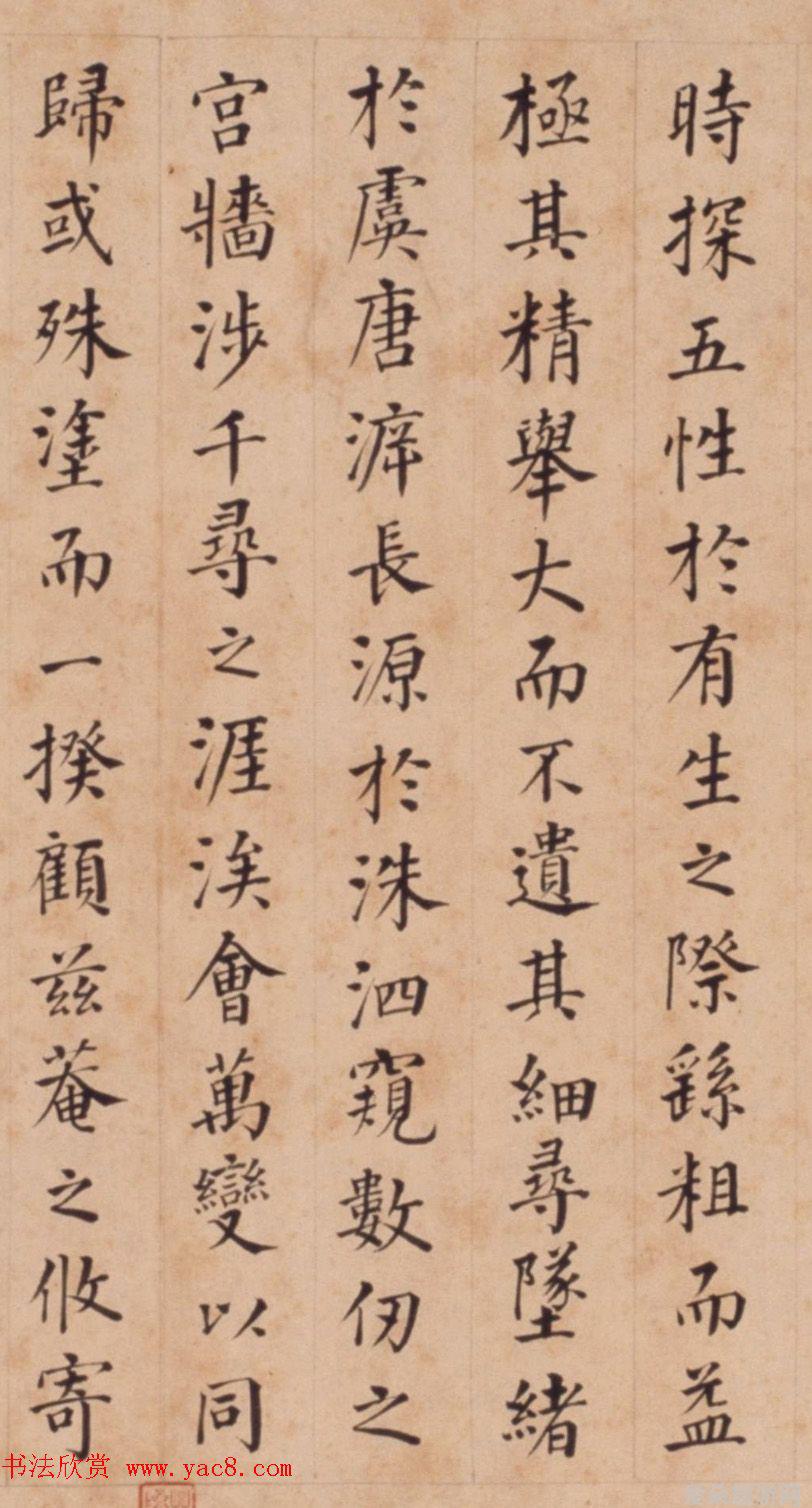 時探五性於有生之際繇粗而益
極其精舉大而不遺其細尋墜緒
於虞唐濬長源於洙泗窺數仞之
宮牆涉千尋之涯涘會萬變以同
歸或殊塗而一揆顧茲菴之攸寄
书法欣赏 www.yac8.com